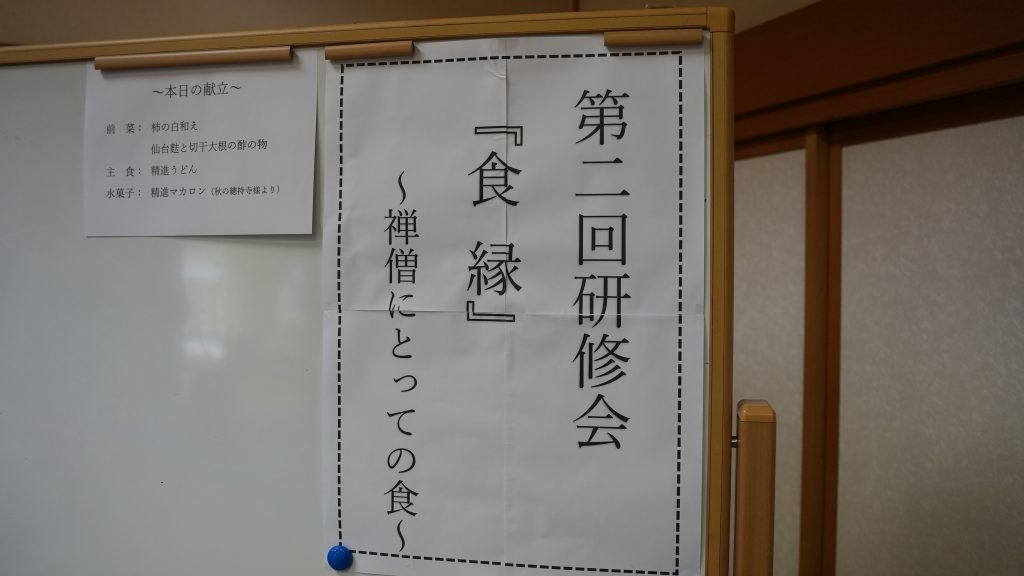 第二回研修会
『食 縁』
～禅僧にとっての食～
～本日の献立～
前 菜： 柿の白和え
仙台麩と切干大根の酢の物
主 食： 精進うどん
水菓子： 精進マカロン（秋の總持寺様より）